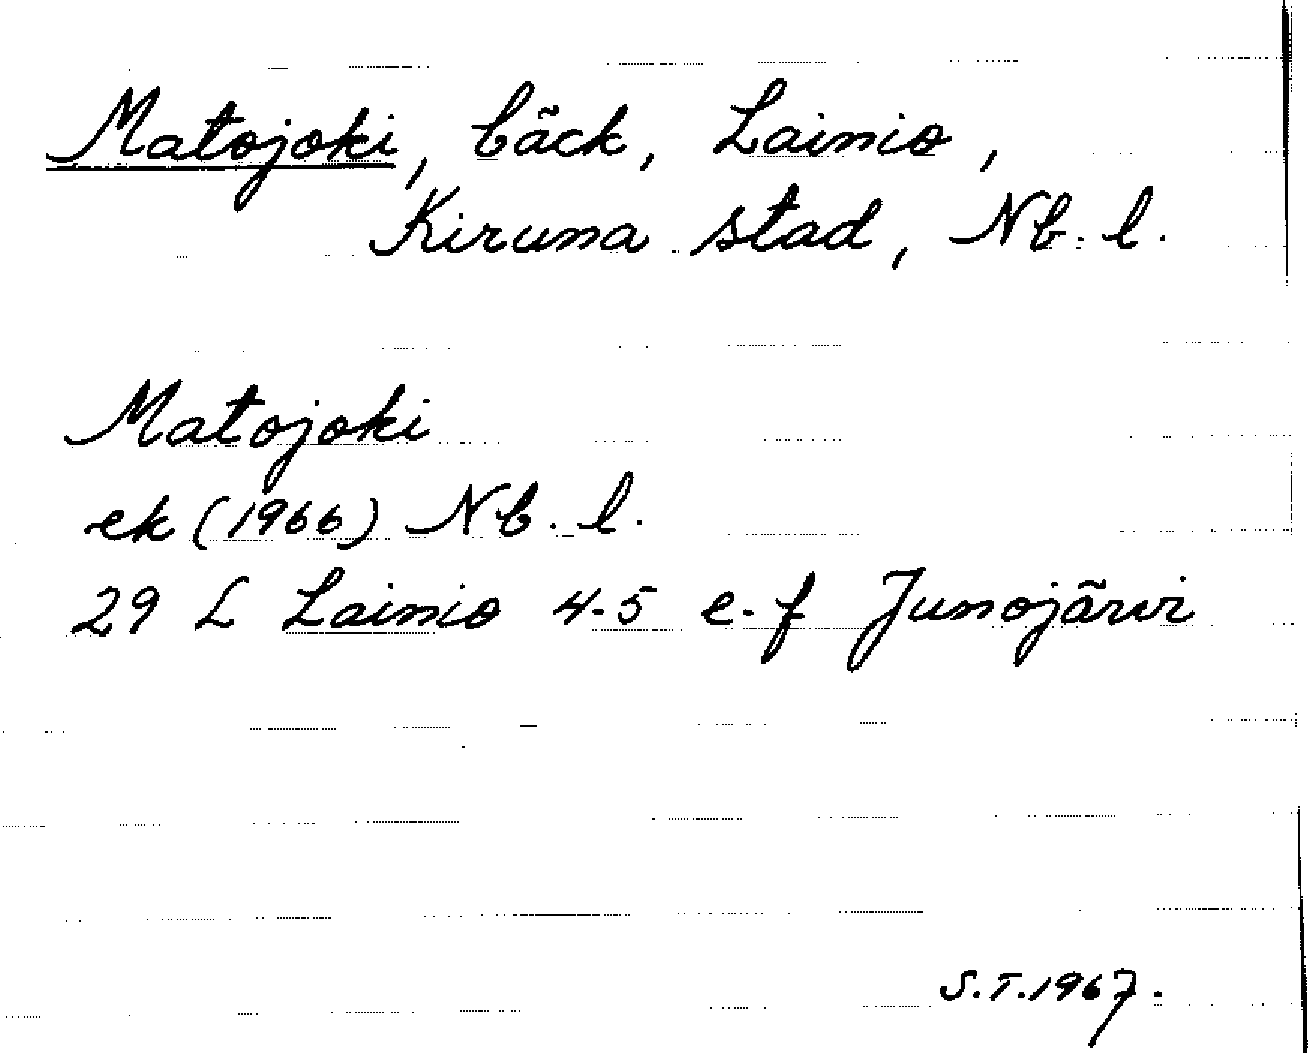 Matojoki, bäck, Lainio,
Kiruna stad, Nb. l.
Matojoki
ek (1966) Nb. l.
29 L Lainio 4-5 e-f Junojärvi
S.T.1967.